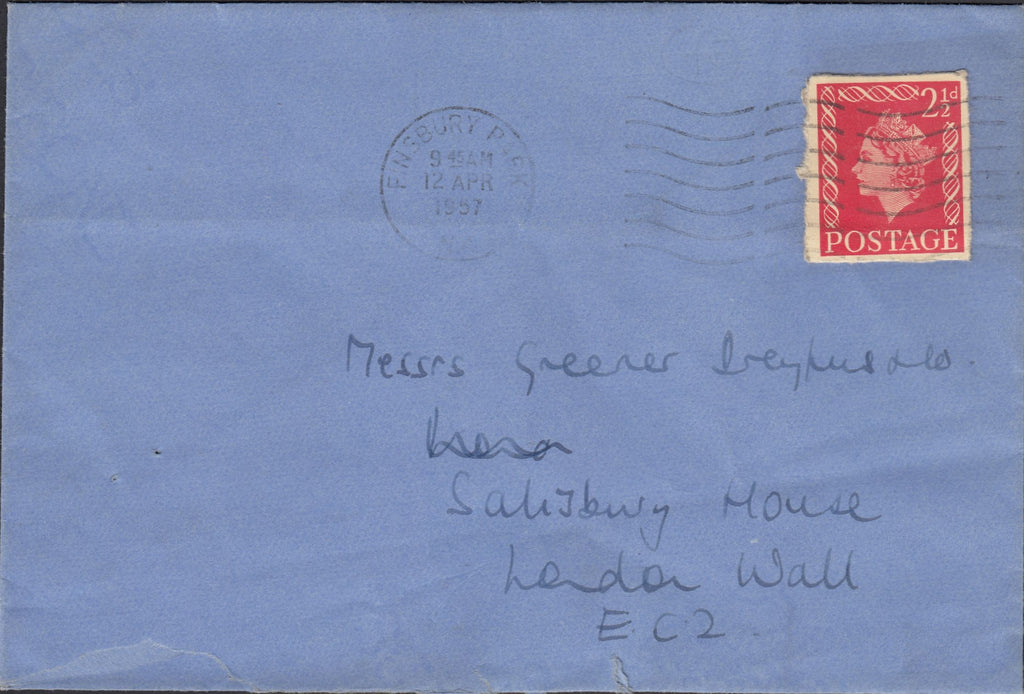 FINSBURY PARK
9 45AM
12 APR
1957
N.
2½d
POSTAGE
Messrs Greener Dreyfus & Co.
Salisbury House
London Wall
E.C.2.